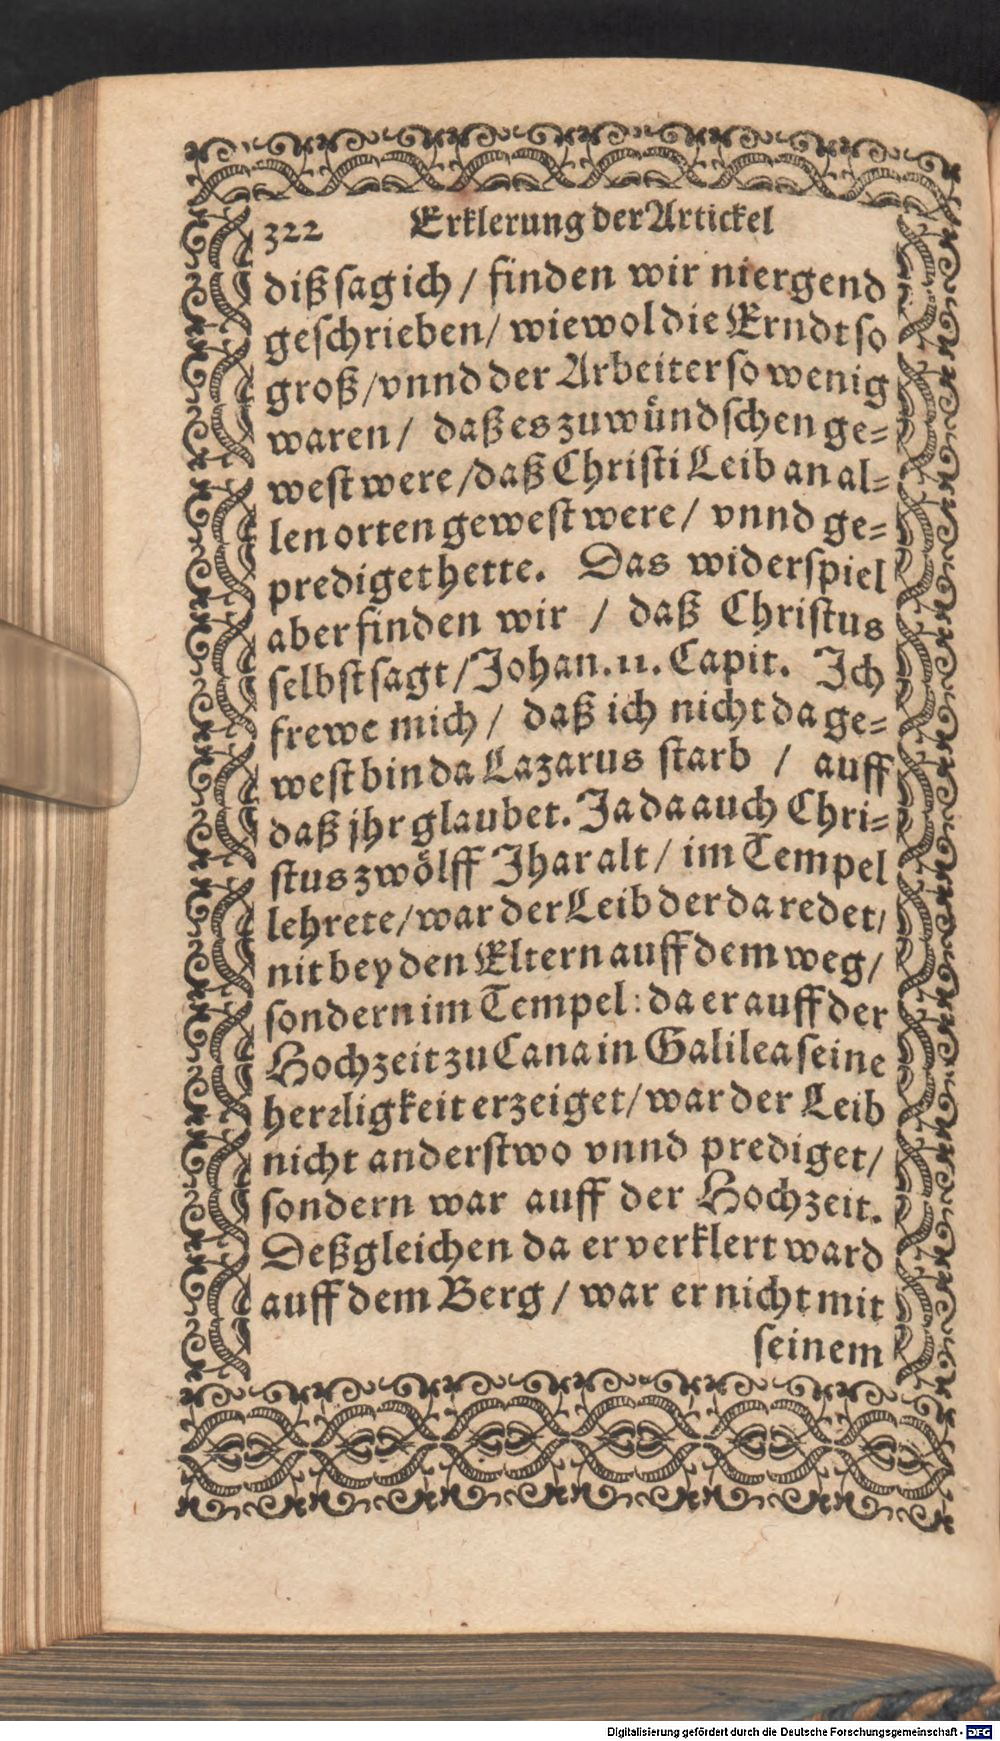 322 Erklerung der Artickel
diß sag ich / finden wir niergend
geschrieben / wiewol die Erndt so
groß / vnnd der Arbeiter so wenig
waren / daß es zu wündschen ge=
west were / daß Christi Leib an al=
len orten gewest were / vnnd ge=
prediget hette. Das widerspiel
aber finden wir / daß Christus
selbst sagt / Johan. 11. Capit. Ich
frewe mich / daß ich nicht da ge=
west bin da Lazarus starb / auff
daß jhr glaubet. Ja da auch Chri=
stus zwölff Jhar alt / im Tempel
lehrete / war der Leib der da redet /
nit bey den Eltern auff dem weg /
sondern im Tempel: da er auff der
Hochzeit zu Cana in Galilea seine
herrligkeit erzeiget / war der Leib
nicht anderstwo vnnd prediget /
sondern war auff der Hochzeit.
Deßgleichen da er verklert ward
auff dem Berg / war er nicht mit
seinem
Digitalisierung gefördert durch die Deutsche Forschungsgemeinschaft - DFG